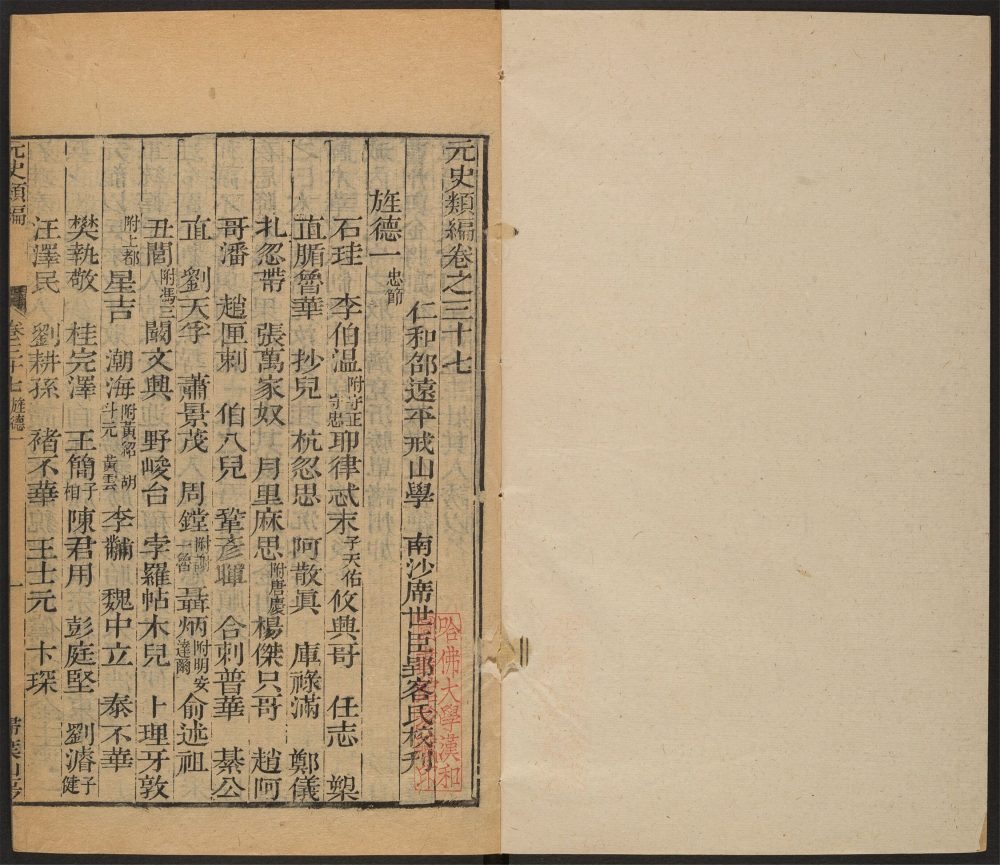 元史類編卷之三十七
仁和邵遠平戒山學 南沙席世臣郢客氏校刊
旌德一忠節
石珪 李伯温附守正守忠 耶律忒末子天佑 攸興哥 任志 槊
直腯魯華 抄兒 杭忽思 阿散眞 庫祿滿 鄭儀
札忽帶 張萬家奴 月里麻思附唐慶 楊傑只哥 趙阿
哥潘 趙匣剌 伯八兒 鞏彦暉 合刺普華 綦公
直 劉天孚 蕭景茂 周鏜 聶炳附明安達爾 俞述祖
丑閭附馮三 闕文興 野峻台 孛羅帖木兒 卜理牙敦
附上都 星吉 潮海附黃紹 胡斗元 黃雲 李黼 魏中立 泰不華
樊執敬 桂完澤 王簡子相 陳君用 彭庭堅 劉濬子健
汪澤民 劉耕孫 褚不華 王士元 卞琛
元史類編 卷三十七 旌德一 一
哈佛大學漢和